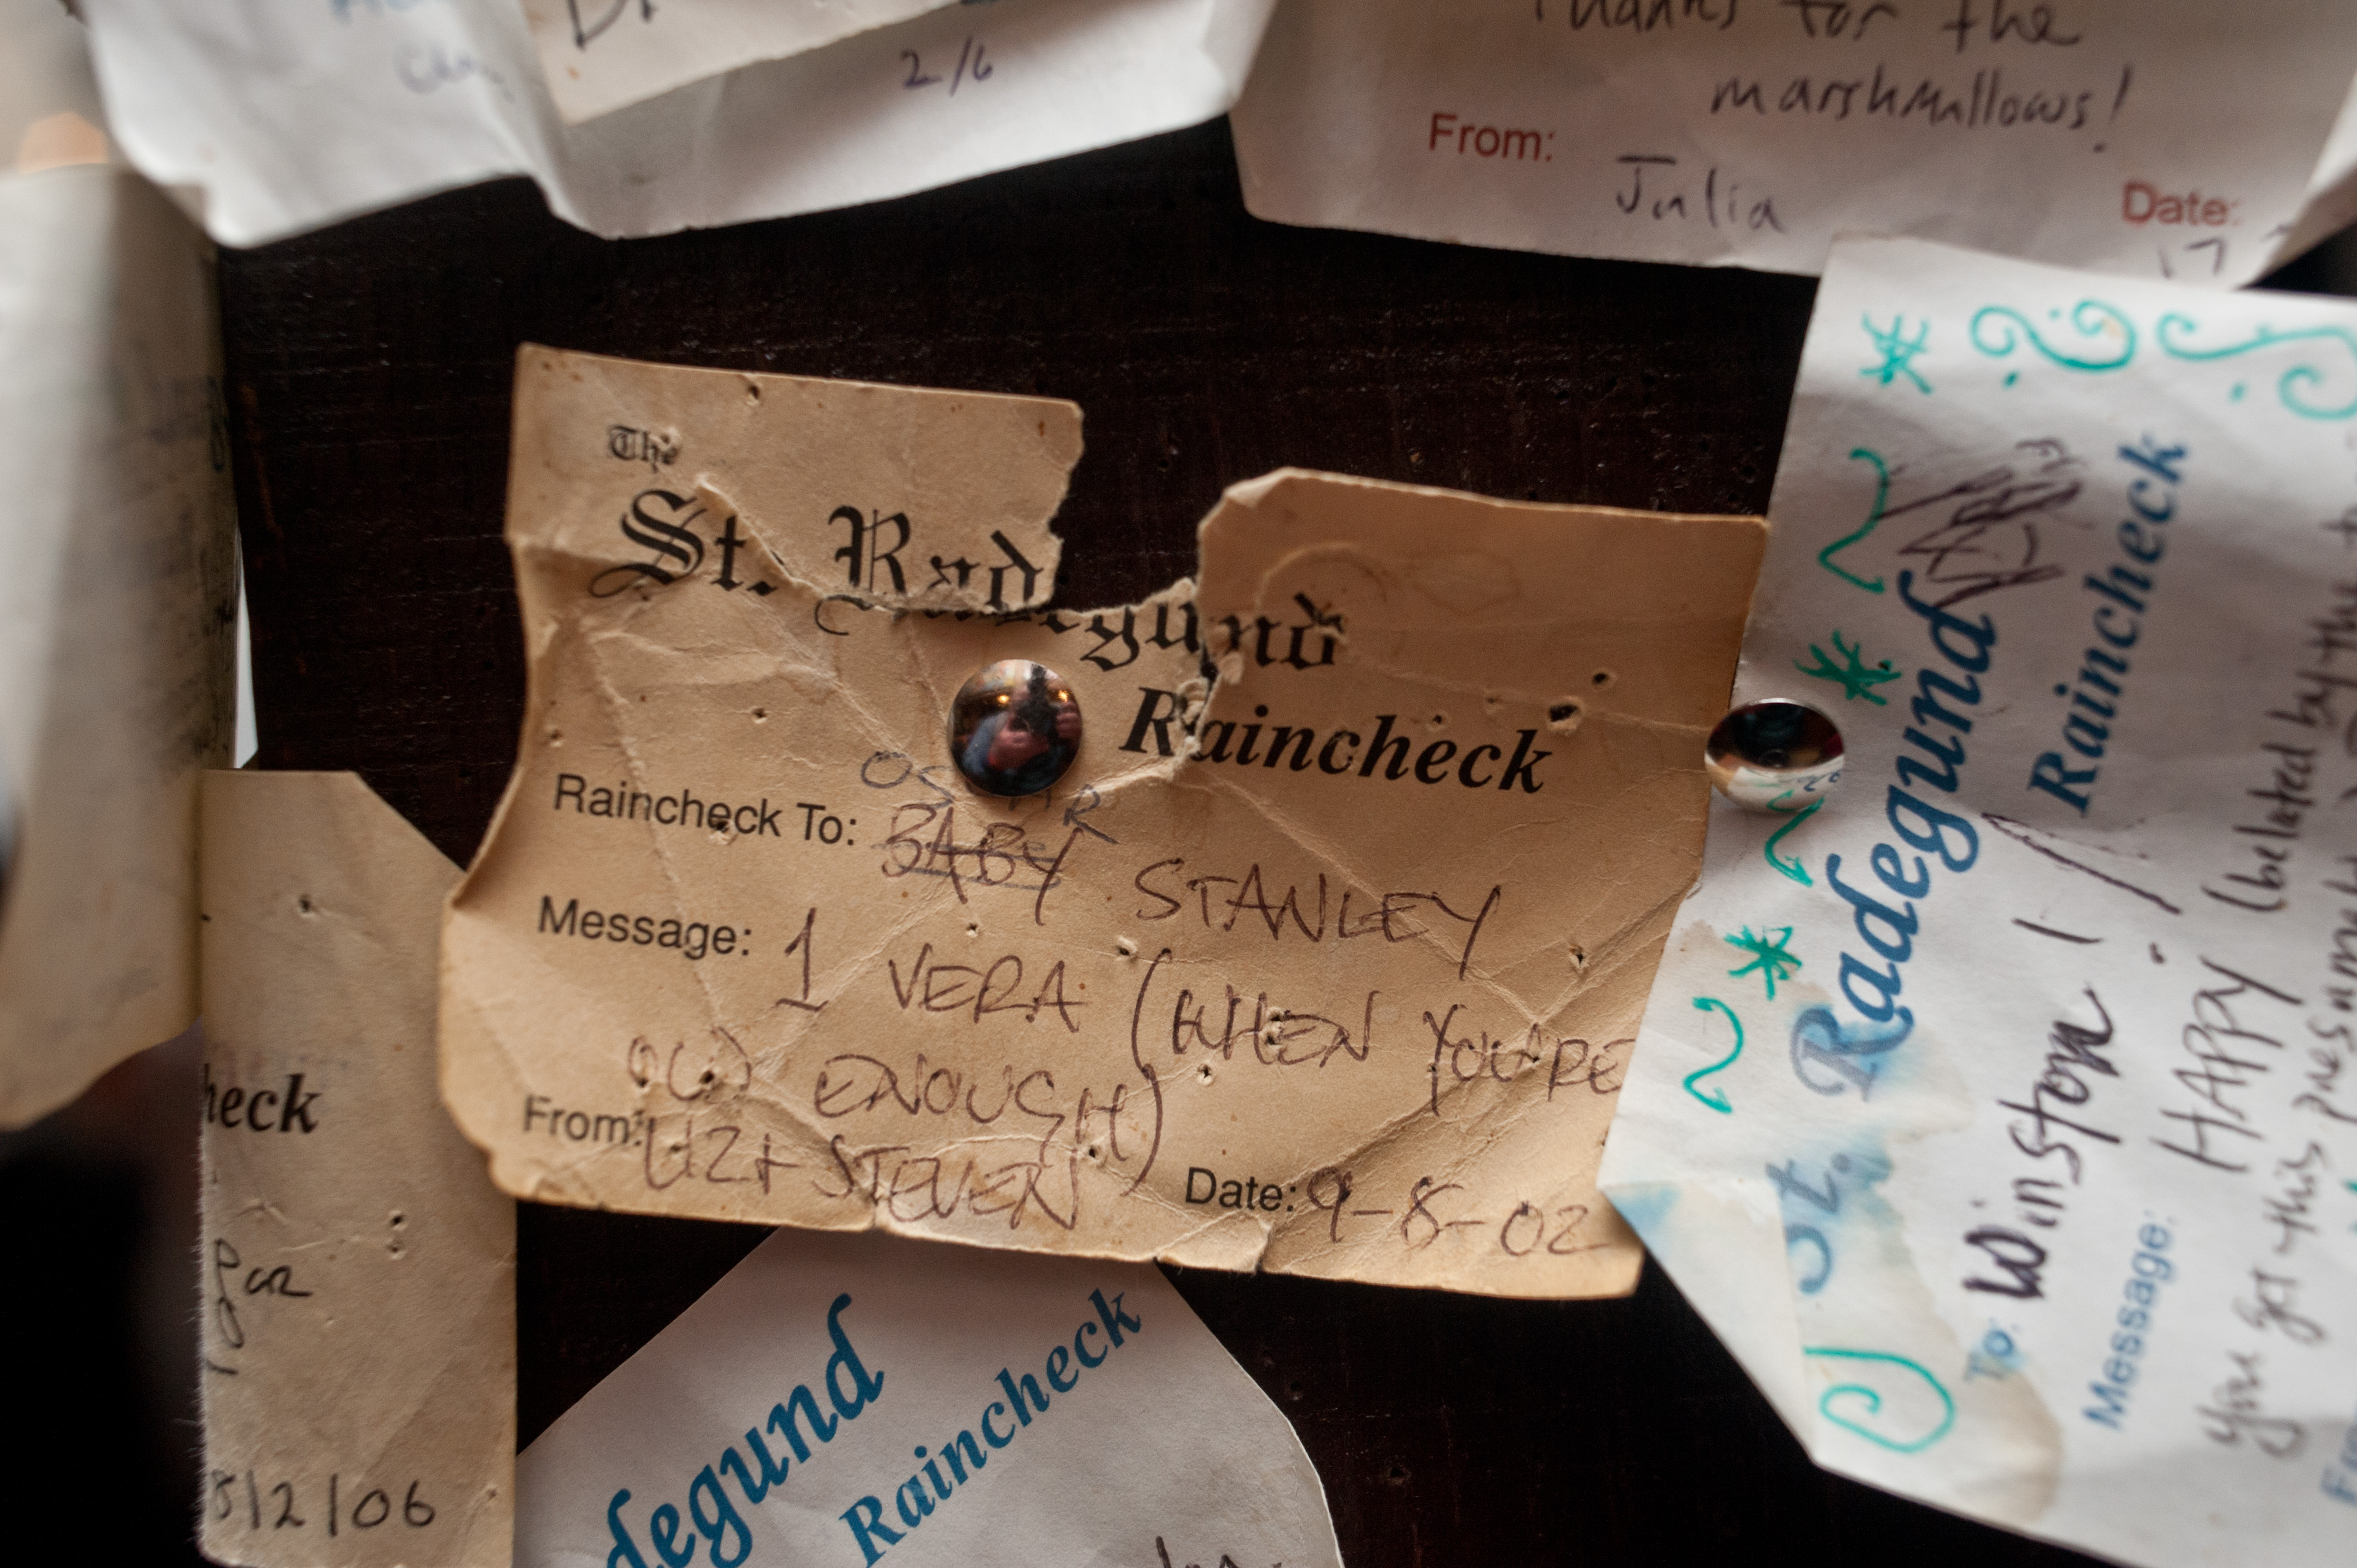 2/6
Thanks for the
marshmallows!
From:
Julia
Date:
17
The
St. Radegund
Raincheck
OSCAR
Raincheck To: BABY STANLEY
Message: 1 VERA (WHEN YOU'RE
OLD ENOUGH)
From: LIZ + STEVEN
Date: 9-8-02
heck
8/2/06
degund
Raincheck
St. Radegund
Raincheck
To: Winston!
Message: HAPPY (belated by the
You get this